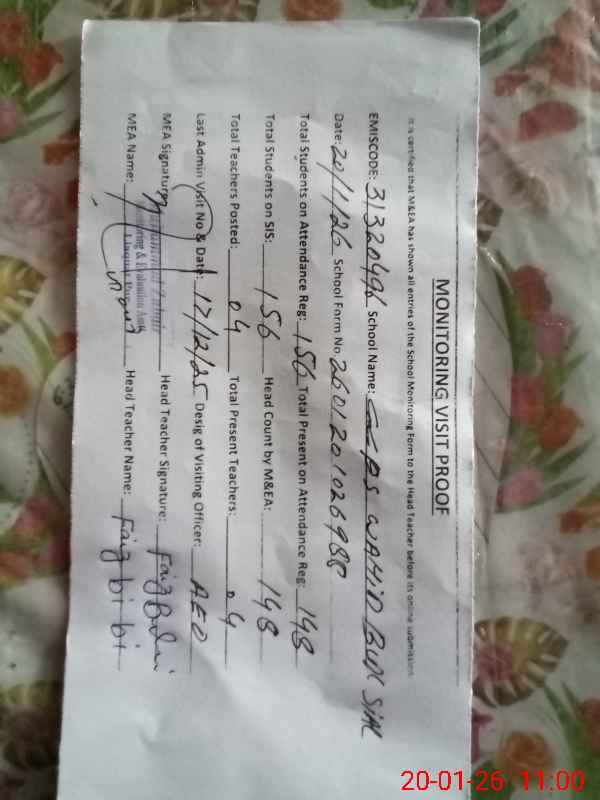 MONITORING VISIT PROOF
It is certified that M&EA has shown all entries of the School Monitoring Form to the Head Teacher before its online submission.
EMISCODE: 31320496 School Name: GGPS WAHID BUX SIAL
Date: 20/1/26 School Form No 2601201026988
Total Students on Attendance Reg: 156 Total Present on Attendance Reg: 148
Total Students on SIS: 156 Head Count by M&EA: 148
Total Teachers Posted: 04 Total Present Teachers: 04
Last Admin Visit No & Date: 17/12/25 Desig of Visiting Officer: AEO
MEA Signature: Head Teacher Signature: Faiz Bibi
Monitoring & Evaluation Asstt
MEA Name: Head Teacher Name: Faiz bi bi
20-01-26 11:00